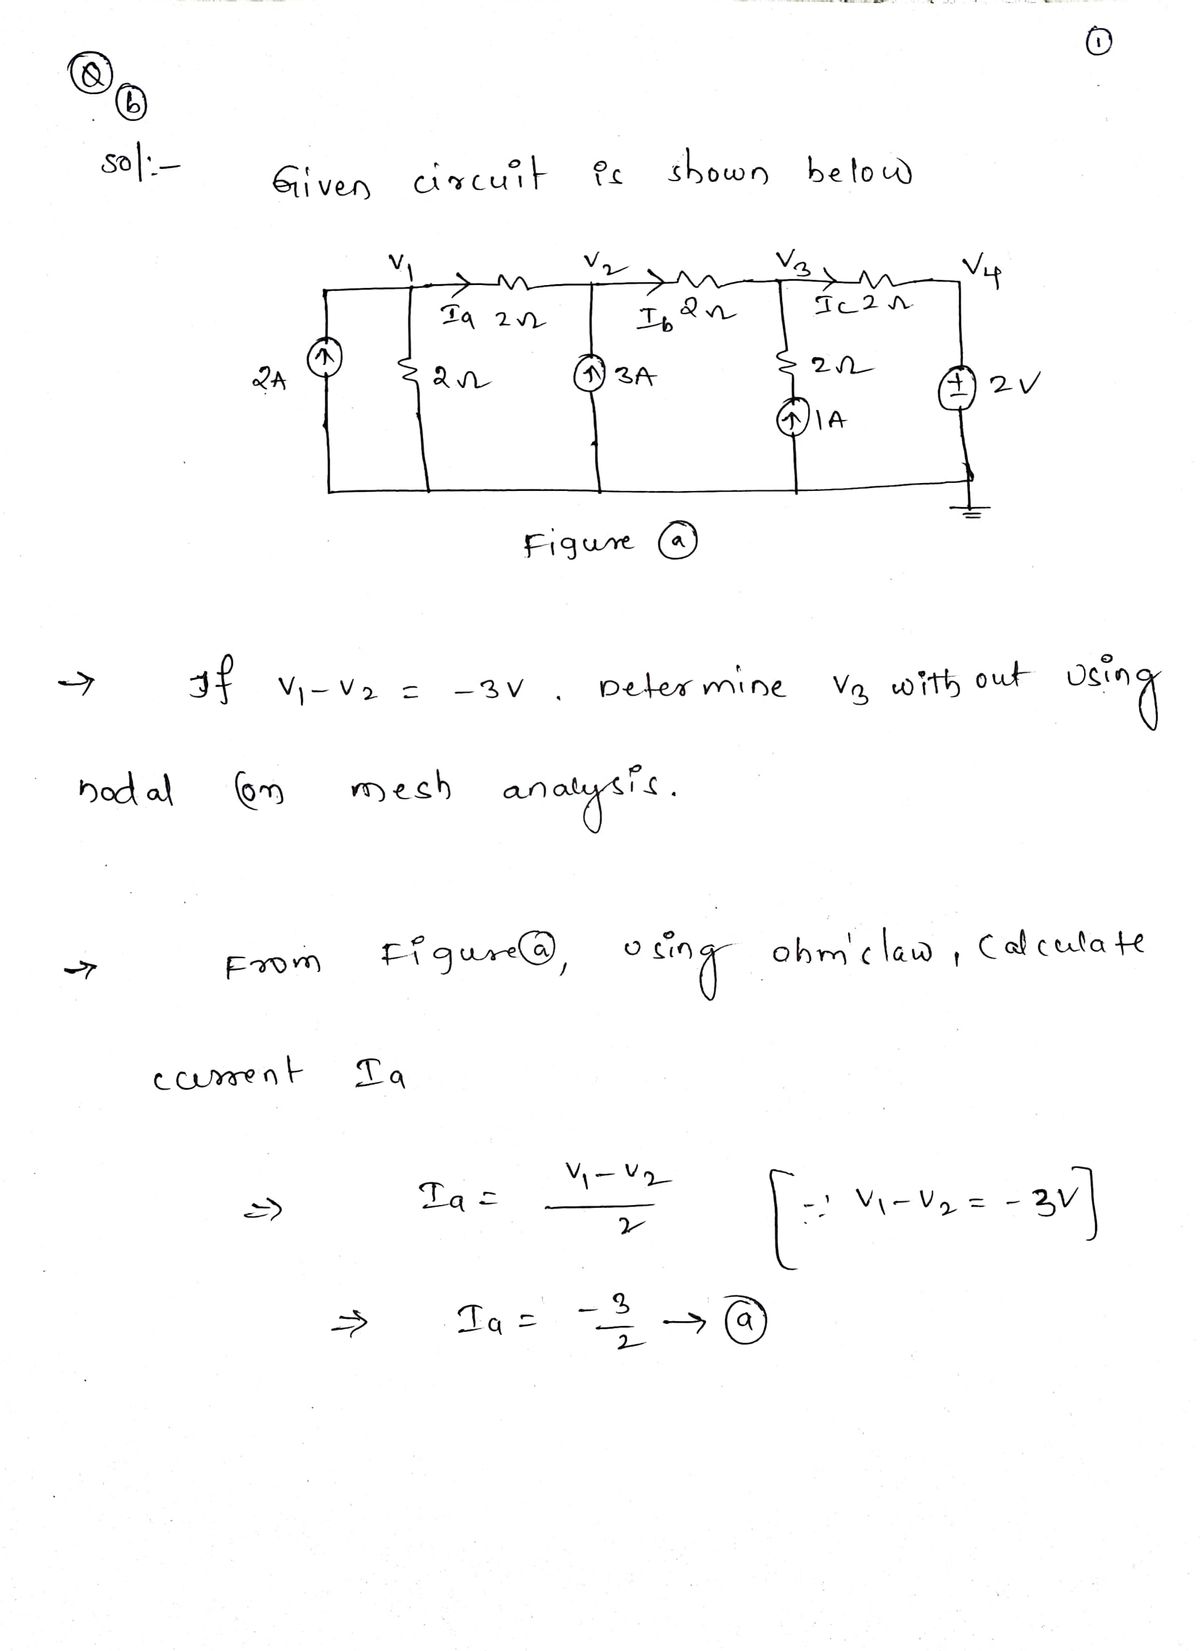 ①
Ⓠ
ⓑ
sol:-
Given circuit is shown below
V1 V2 V3 V4
Ia 2Ω Ib 2Ω Ic 2Ω
2A 2Ω 3A 2Ω 2V
1A
Figure ⓐ
→ If V1-V2 = -3V. Determine V3 with out using
nodal (or) mesh analysis.
→ From Figure ⓐ, using ohm's law, calculate
current Ia
⇒ Ia = V1-V2 / 2 [∵ V1-V2 = -3V]
⇒ Ia = -3/2 → ⓐ